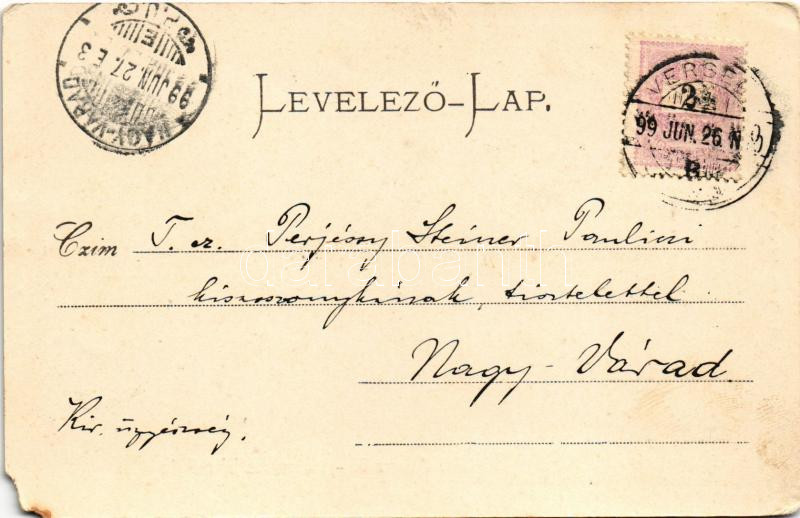 NAGY-VÁRAD
99 JUN. 27. E 3
LEVELEZŐ-LAP.
VERSE
99 JUN. 26. N
Czim T. cz. Perjéssy Steiner Paulini
kisasszonykának, tisztelettel
Nagy-Várad
Kir. ügyészség.
darabanth